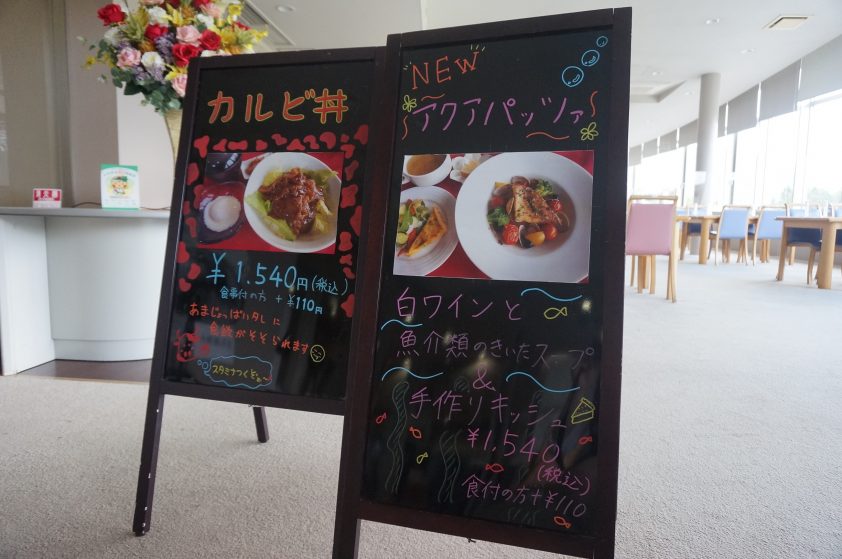 カルビ丼
¥1.540円(税込)
食事付の方 + ¥110円
あまじょっぱいタレに
食欲がそそられます
スタミナつくぞぉ〜
NEW
アクアパッツァ
白ワインと
魚介類のきいたスープ
&
手作りキッシュ
¥1,540
(税込)
食付の方+¥110